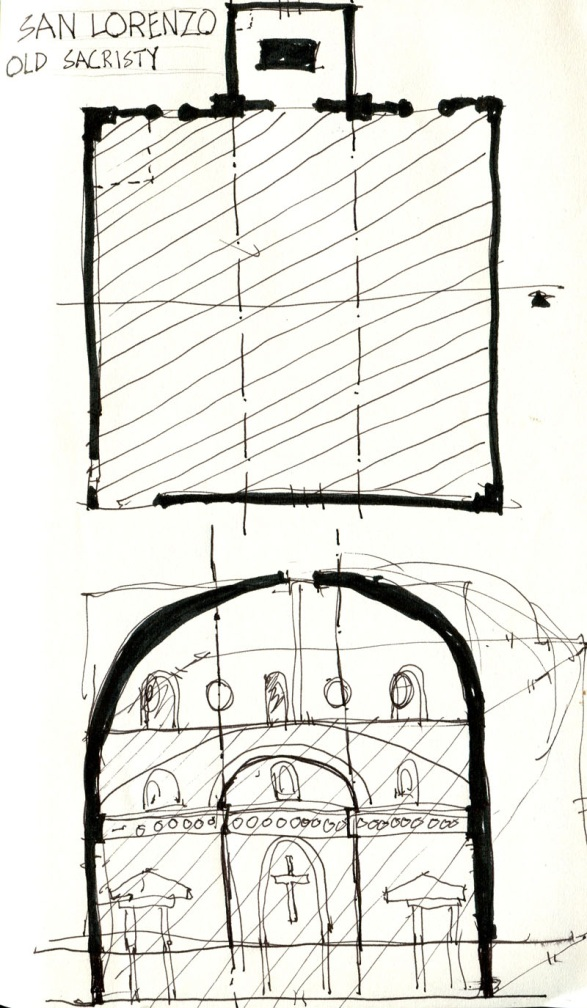 SAN LORENZO
OLD SACRISTY